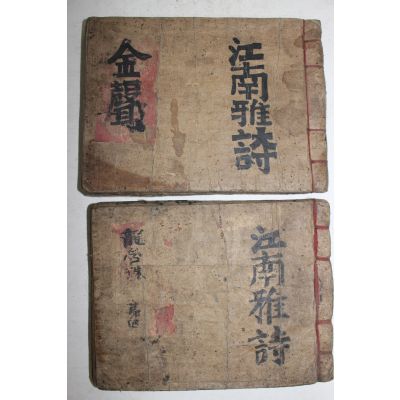 江南雅詩
金聲
江南雅詩